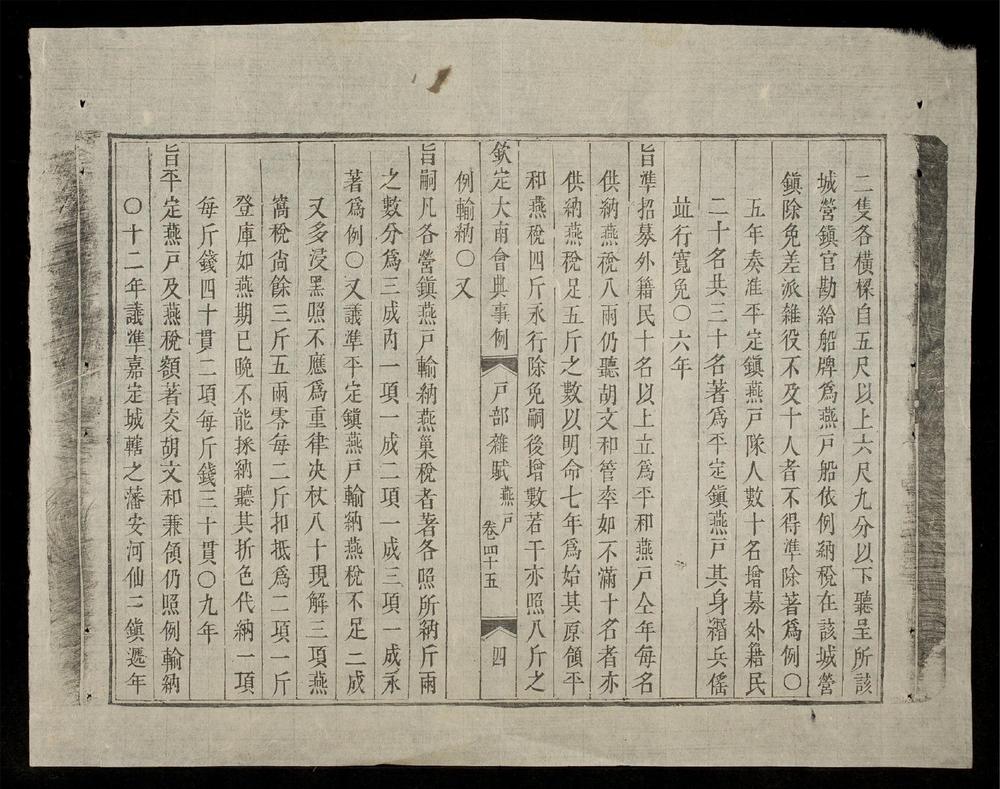 二隻各橫樑自五尺以上六尺九分以下聽呈所該
城營鎮官勘給船牌爲燕戸船依例納稅在該城營
鎮除免差派雜役不及十人者不得準除著爲例〇
五年奏准平定鎮燕戸隊人數十名增募外籍民
二十名共三十名著爲平定鎮燕戸其身緡兵傜
竝行寬免〇六年
旨準招募外籍民十名以上立爲平和燕戸仝年每名
供納燕稅八兩仍聽胡文和管率如不滿十名者亦
供納燕稅足五斤之數以明命七年爲始其原領平
和燕稅四斤永行除免嗣後增數若干亦照八斤之
欽定大南會典事例 戸部雜賦 燕戸 卷四十五 四
例輸納〇又
旨嗣凡各營鎮燕戸輸納燕巢稅者著各照所納斤兩
之數分爲三成內一項一成二項一成三項一成永
著爲例〇又議準平定鎮燕戸輸納燕稅不足二成
又多浸黑照不應爲重律决杖八十現解三項燕
窩稅尚餘三斤五兩零每二斤扣抵爲二項一斤
登庫如燕期已晚不能採納聽其折色代納一項
每斤錢四十貫二項每斤錢三十貫〇九年
旨平定燕戸及燕稅額著交胡文和兼領仍照例輸納
〇十二年議準嘉定城轄之藩安河仙二鎮遞年